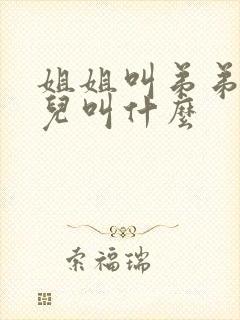 姐姐叫弟弟
兒叫什麼
索福瑞